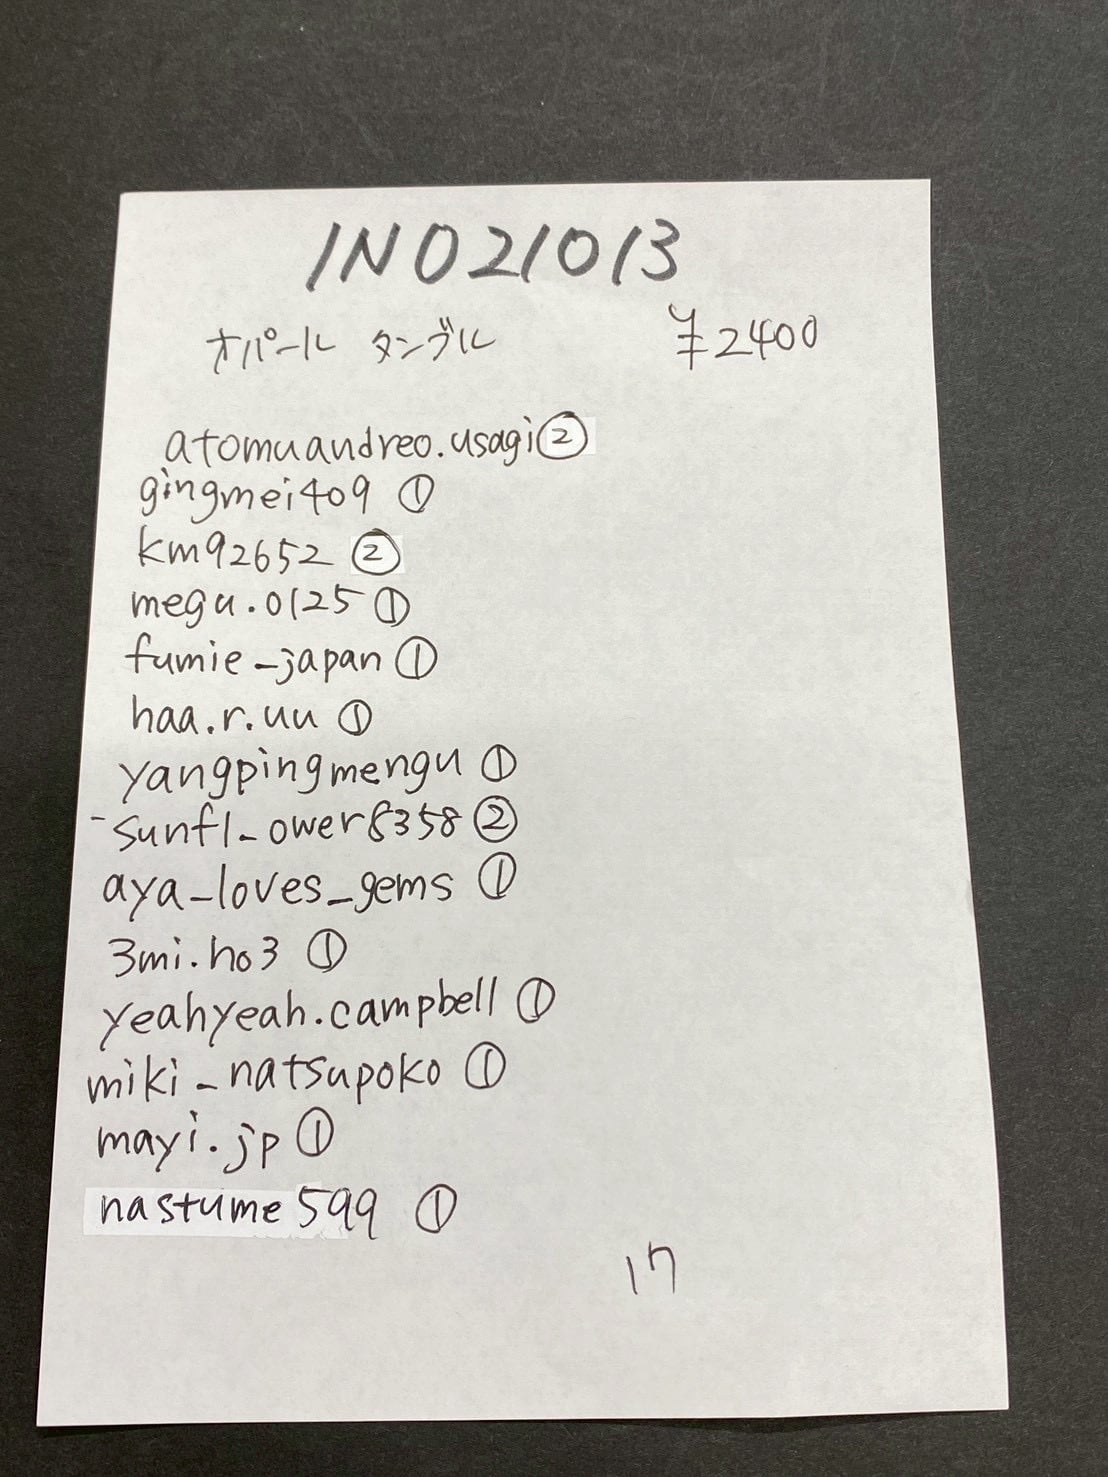 INO21013
オパール タンブル ¥2400
atomuandreo.usagi②
gingmei409 ①
km92652 ②
megu.0125 ①
fumie_japan ①
haa.r.uu ①
yangpingmengu ①
-sunfl_ower8358 ②
aya_loves_gems ①
3mi.ho3 ①
yeahyeah.campbell ①
miki_natsupoko ①
mayi.jp ①
nastume599 ①
17